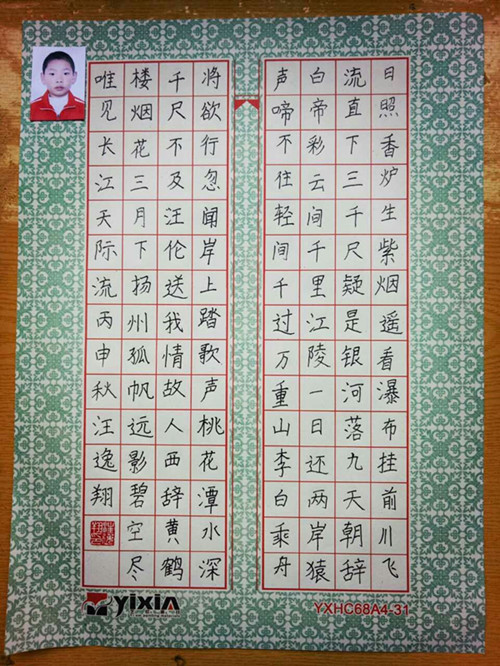 日照香炉生紫烟遥看瀑布挂前川飞
流直下三千尺疑是银河落九天朝辞
白帝彩云间千里江陵一日还两岸猿
声啼不住轻间千过万重山李白乘舟
将欲行忽闻岸上踏歌声桃花潭水深
千尺不及汪伦送我情故人西辞黄鹤
楼烟花三月下扬州孤帆远影碧空尽
唯见长江天际流丙申秋汪逸翔
yixin
YXHC68A4-31